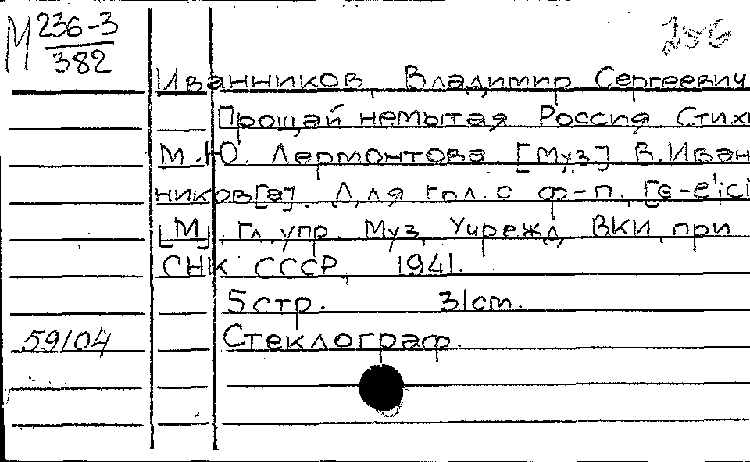 М 236-3
382
256
Иванников, Владимир Сергеевич
Прощай немытая Россия Стихи
М.Ю. Лермонтова [Муз] В.Иван
ников[а]. Для гол. с ф-п.
[М] Гл. упр. Муз. Учрежд. ВКИ при
СНК СССР, 1941.
5 стр. 31 cm.
59104
Стеклограф.